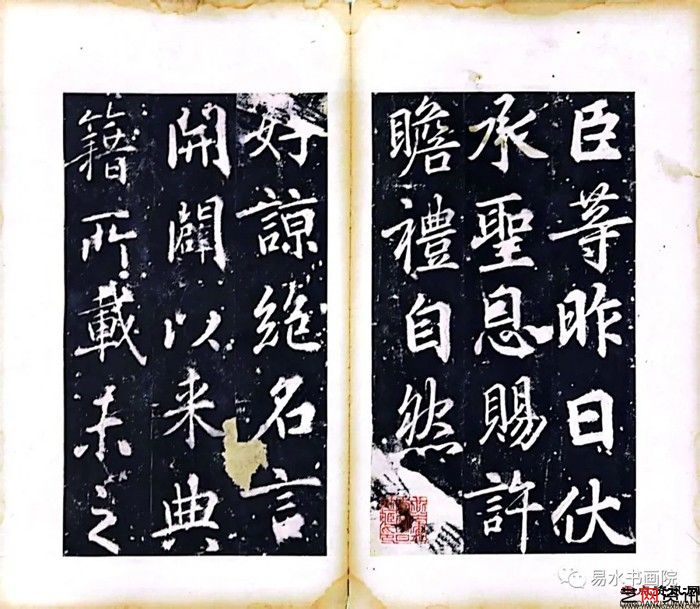 臣等昨日伏
承聖恩賜許
瞻禮自然
好諒絶名言
開闢以来典
籍所載未之
易水书画院